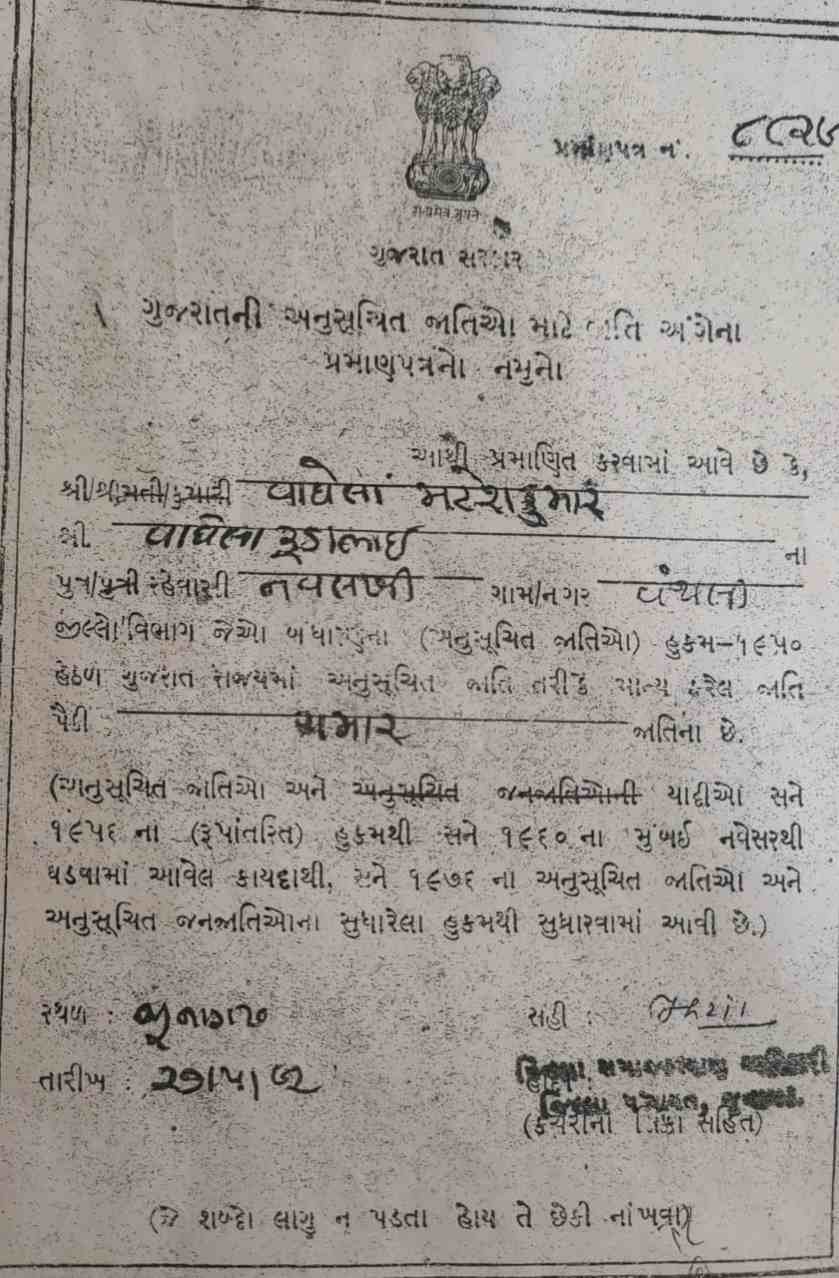 પ્રમાણપત્ર નં.
ગુજરાત સરકાર
ગુજરાતની અનુસૂચિત જાતિઓ માટે જાતિ અંગેના
પ્રમાણપત્રનો નમુનો
આથી પ્રમાણિત કરવામાં આવે છે કે,
શ્રી/શ્રીમતી/કુમારી વાઘેલા
શ્રી વાઘેલા રૂડાભાઈ ના
પુત્ર/પુત્રી રહેવાસી નવલખી ગામ/નગર વંથલી
જીલ્લો/વિભાગ જેઓ બંધારણના (અનુસૂચિત જાતિઓ) હુકમ-૧૯૫૦
હેઠળ ગુજરાત રાજ્યમાં અનુસૂચિત જાતિ તરીકે માન્ય કરેલ જાતિ
પૈકી ચમાર જાતિના છે.
(અનુસૂચિત જાતિઓ અને અનુસૂચિત જનજાતિઓની યાદીઓ સને
૧૯૫૬ ના (રૂપાંતરિત) હુકમથી સને ૧૯૬૦ ના મુંબઈ નવેસરથી
ઘડવામાં આવેલ કાયદાથી, સને ૧૯૭૬ ના અનુસૂચિત જાતિઓ અને
અનુસૂચિત જનજાતિઓના સુધારેલા હુકમથી સુધારવામાં આવી છે.)
સ્થળ : જૂનાગઢ
સહી :
તારીખ : ૨૭/૫/૭૨
(કચેરીના સિક્કા સહિત)
(જે શબ્દો લાગુ ન પડતા હોય તે છેકી નાંખવા)